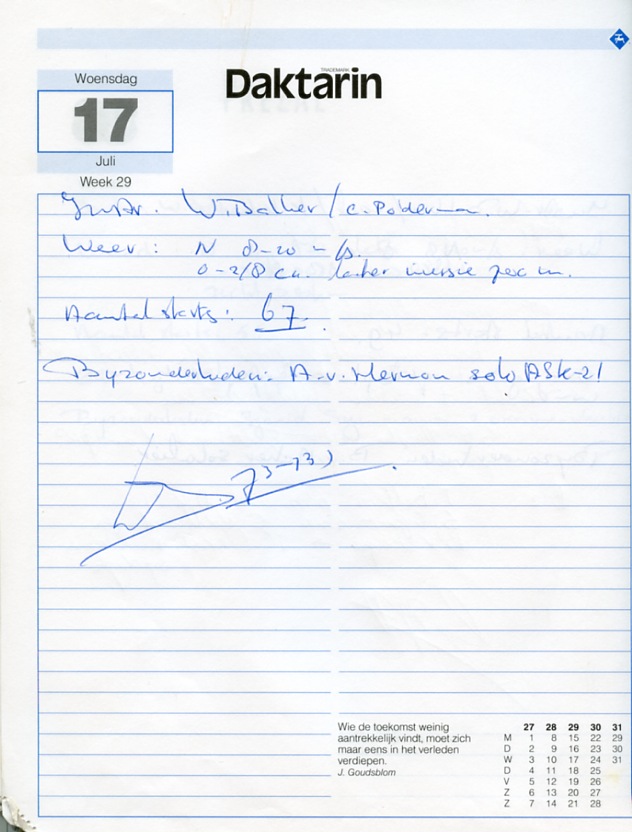 Woensdag
17
Juli
Week 29
TRADEMARK
Daktarin
Instr. W. Bakker / C. Polderman.
Weer: N 8-20 m/s.
0-2/8 cu. later inversie
Aantal starts: 67.
Byzonderheden: A.v. Herman solo ASK-21
Wie de toekomst weinig
aantrekkelijk vindt, moet zich
maar eens in het verleden
verdiepen.
J. Goudsblom
27 28 29 30 31
M 1 8 15 22 29
D 2 9 16 23 30
W 3 10 17 24 31
D 4 11 18 25
V 5 12 19 26
Z 6 13 20 27
Z 7 14 21 28